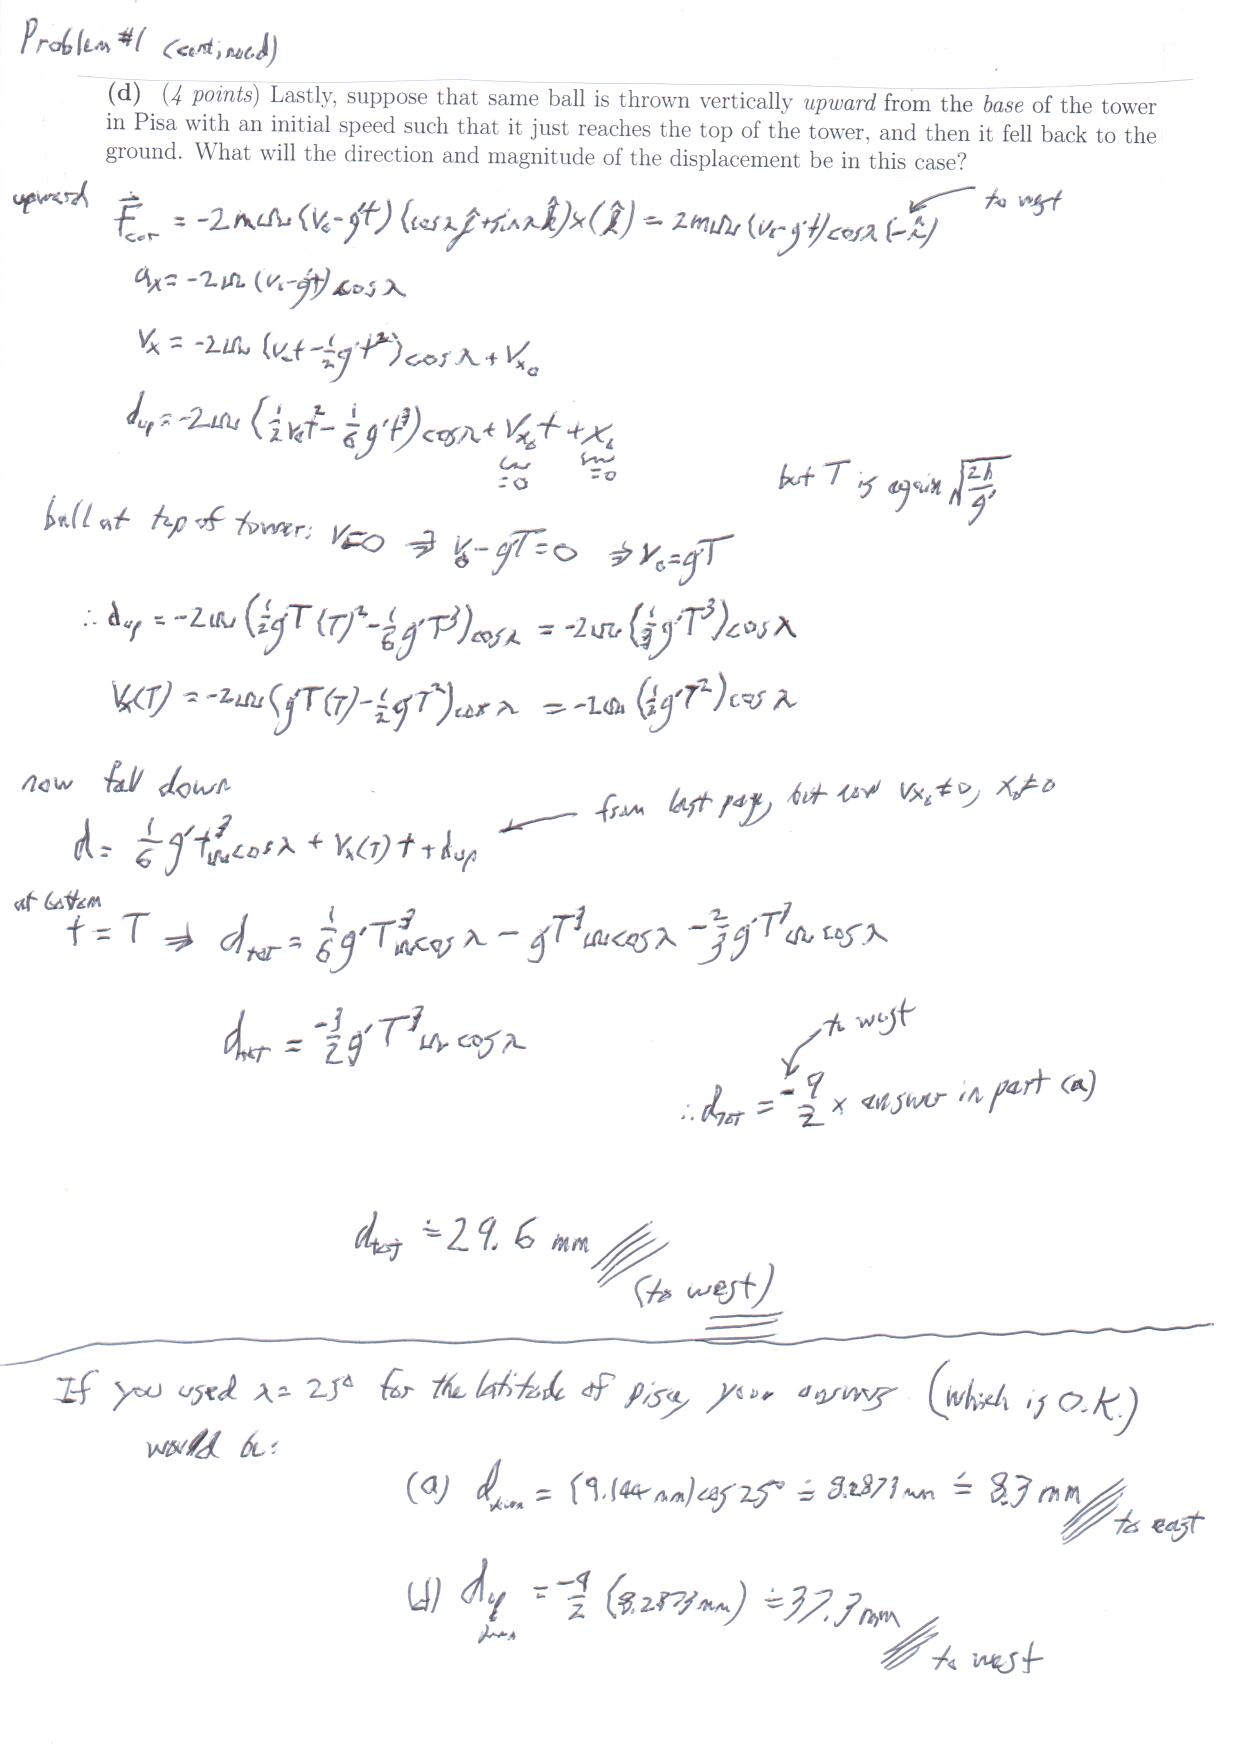 Problem #1 (continued)
(d) (4 points) Lastly, suppose that same ball is thrown vertically upward from the base of the tower
in Pisa with an initial speed such that it just reaches the top of the tower, and then it fell back to the
ground. What will the direction and magnitude of the displacement be in this case?
upward F⃗cor = -2mω(v₀-g't)(cosλ ĵ+sinλ k̂)×(k̂) = 2mω(v₀-g't)cosλ(-î) to west
aₓ = -2ω(v₀-g't)cosλ
vₓ = -2ω(v₀t-½g't²)cosλ + vₓ₀
d_up = -2ω(½v₀t²-⅙g't³)cosλ + vₓ₀t + x₀
=0 =0
but T is again √(2h/g')
ball at top of tower: v=0 ⇒ v₀-g'T=0 ⇒ v₀=g'T
∴ d_up = -2ω(½g'T(T)²-⅙g'T³)cosλ = -2ω(⅓g'T³)cosλ
vₓ(T) = -2ω(g'T(T)-½g'T²)cosλ = -2ω(½g'T²)cosλ
now fall down
from last page, but now vₓ₀≠0, x₀≠0
d = ⅙g't³ω cosλ + vₓ(T)t + d_up
at bottom
t=T ⇒ d_tot = ⅙g'T³ω cosλ - g'T³ω cosλ - ⅔g'T³ω cosλ
d_tot = -3/2 g'T³ω cosλ
to west
∴ d_tot = -9/2 × answer in part (a)
d_tot ≐ 29.6 mm
(to west)
If you used λ=25° for the latitude of Pisa, your answers (which is O.K.)
would be:
(a) d = (9.144 mm)cos25° ≐ 8.2873 mm ≐ 8.3 mm
to east
(d) d = -9/2 (8.2873 mm) ≐ 37.3 mm
to west